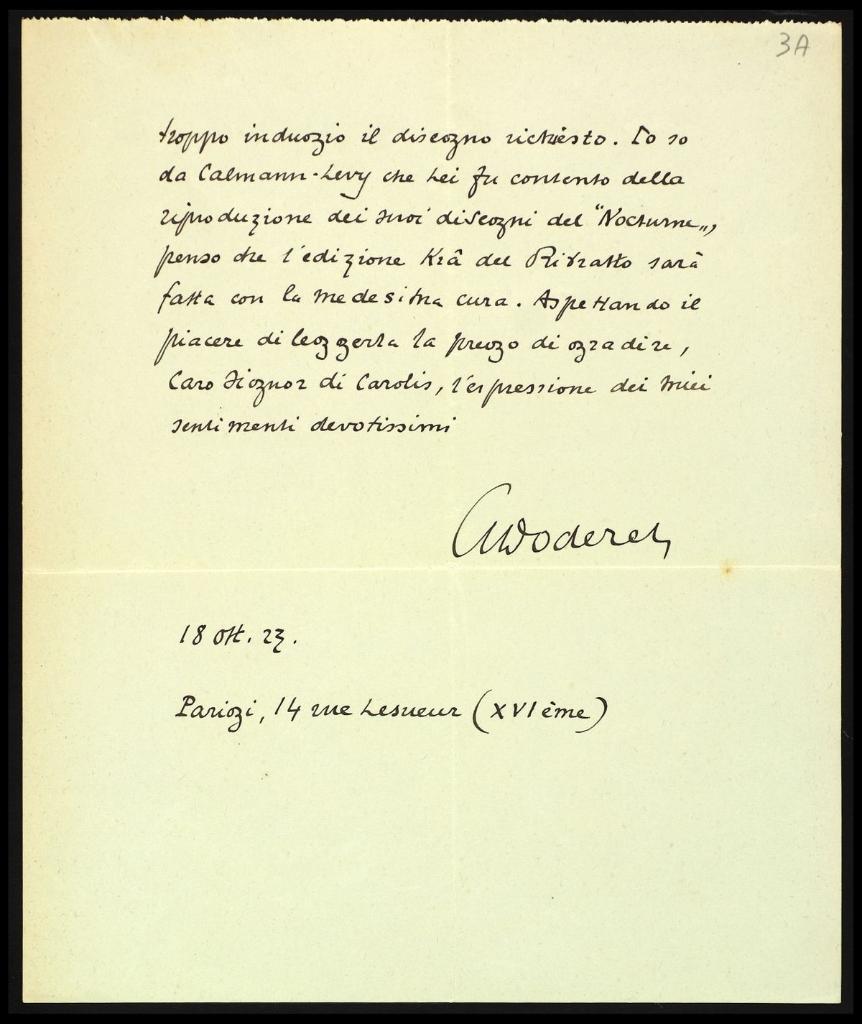 3A
troppo indugio il disegno richiesto. Io so
da Calmann-Levy che Lei fu contento della
riproduzione dei suoi disegni del "Nocturne„,
penso che l'edizione Krâ del Ritratto sarà
fatta con la medesima cura. Aspettando il
piacere di leggerla la prego di gradire,
Caro Signor di Carolis, l'espressione dei miei
sentimenti devotissimi
Doderet
18 ott. 23.
Parigi, 14 rue Lesueur (XVIème)